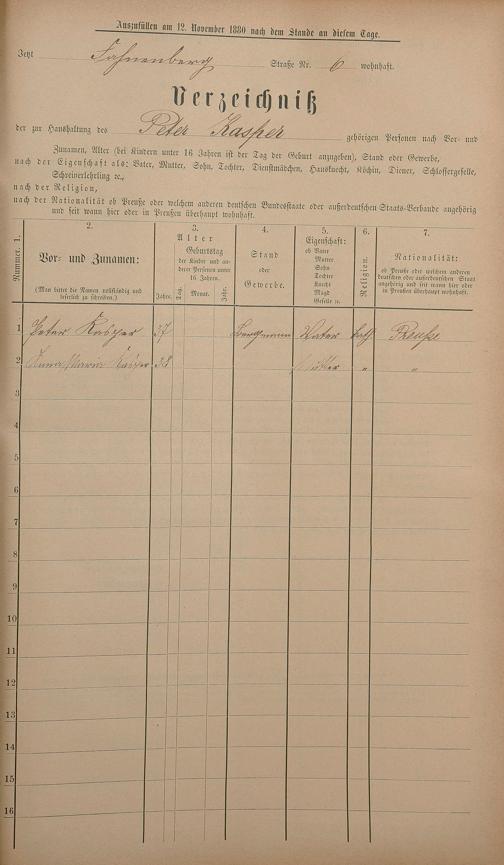 Auszufüllen am 12. November 1880 nach dem Stande an diesem Tage.
Jetzt Fahnenberg Straße Nr. 6 wohnhaft.
Verzeichniß
der zur Haushaltung des Peter Kasper gehörigen Personen nach Vor- und
Zunamen, Alter (bei Kindern unter 16 Jahren ist der Tag der Geburt anzugeben), Stand oder Gewerbe,
nach der Eigenschaft als: Vater, Mutter, Sohn, Tochter, Dienstmädchen, Hausknecht, Köchin, Diener, Schlossergeselle,
Schreiberlehrling ꝛc.,
nach der Religion,
nach der Nationalität ob Preuße oder welchem anderen deutschen Bundesstaate oder außerdeutschen Staats-Verbande angehörig
und seit wann hier oder in Preußen überhaupt wohnhaft.
Nummer. 1.
2.
Vor- und Zunamen:
(Man bittet die Namen vollständig und
leserlich zu schreiben.)
3.
Alter
Geburtstag
der Kinder und an-
derer Personen unter
16 Jahren.
Jahre. Tag. Monat. Jahr.
4.
Stand
oder
Gewerbe.
5.
Eigenschaft:
ob Vater
Mutter
Sohn
Tochter
Knecht
Magd
Geselle ꝛc.
6.
Religion.
7.
Nationalität:
ob Preuße oder welchem anderen
deutschen oder außerdeutschen Staat
angehörig und seit wann hier oder
in Preußen überhaupt wohnhaft.
1 Peter Kasper 37 Bergmann Vater kath. Preuße
2 Anna Maria Kasper 38 Mutter " "
3
4
5
6
7
8
9
10
11
12
13
14
15
16